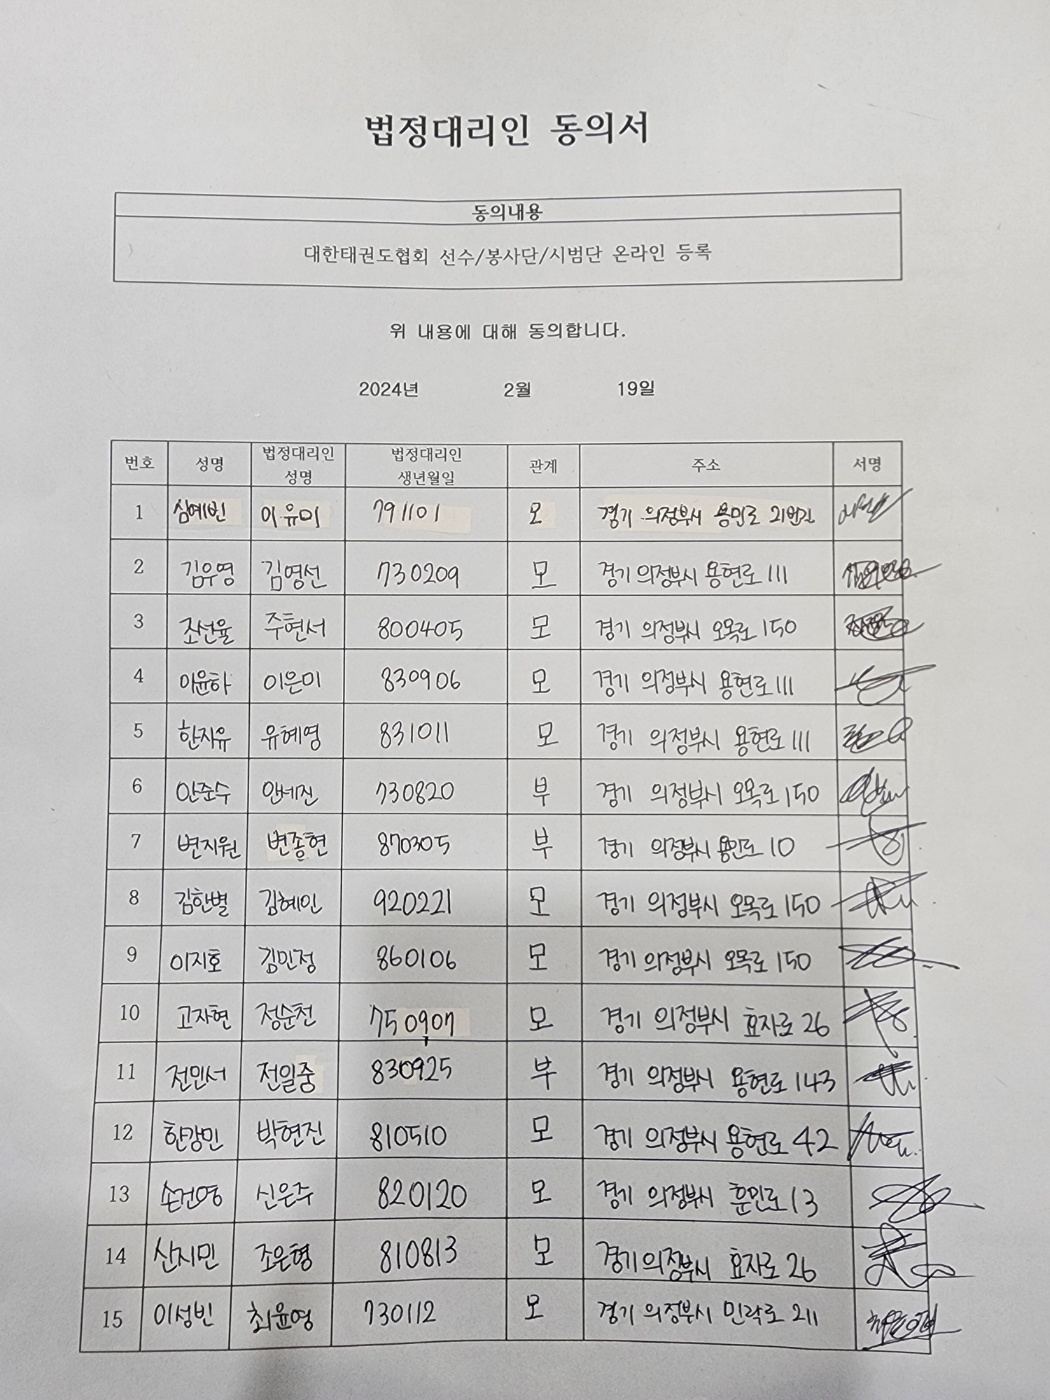 법정대리인 동의서
동의내용
대한태권도협회 선수/봉사단/시범단 온라인 등록
위 내용에 대해 동의합니다.
2024년 2월 19일
번호 성명 법정대리인 성명 법정대리인 생년월일 관계 주소 서명
1 심예빈 이유미 791101 모 경기 의정부시 용민로 21번길
2 김우영 김영선 730209 모 경기 의정부시 용현로 111
3 조선율 주현서 800405 모 경기 의정부시 오목로 150
4 이윤하 이은미 830906 모 경기 의정부시 용현로 111
5 한지유 유혜영 831011 모 경기 의정부시 용현로 111
6 안준수 안세진 730820 부 경기 의정부시 오목로 150
7 변지원 변종현 870305 부 경기 의정부시 용민로 10
8 김한별 김혜인 920221 모 경기 의정부시 오목로 150
9 이지호 김민정 860106 모 경기 의정부시 오목로 150
10 고자현 정순천 750907 모 경기 의정부시 효자로 26
11 전민서 전일중 830925 부 경기 의정부시 용현로 143
12 한강민 박현진 810510 모 경기 의정부시 용현로 42
13 손건영 신은주 820120 모 경기 의정부시 훈민로 13
14 신시민 조은형 810813 모 경기 의정부시 효자로 26
15 이성빈 최윤영 730112 모 경기 의정부시 민락로 211